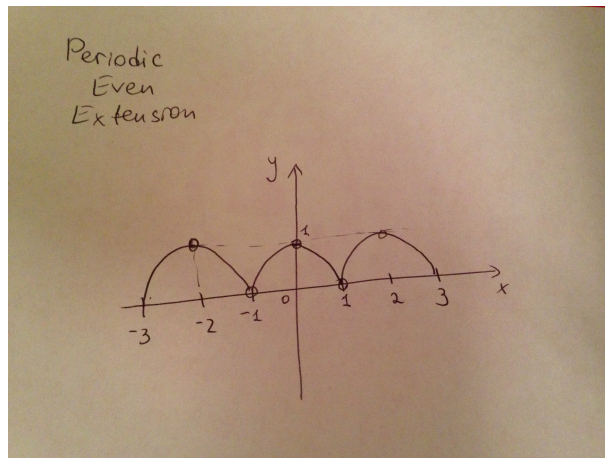 Periodic
Even
Extension
y
1
-3
-2
-1
0
1
2
3
x